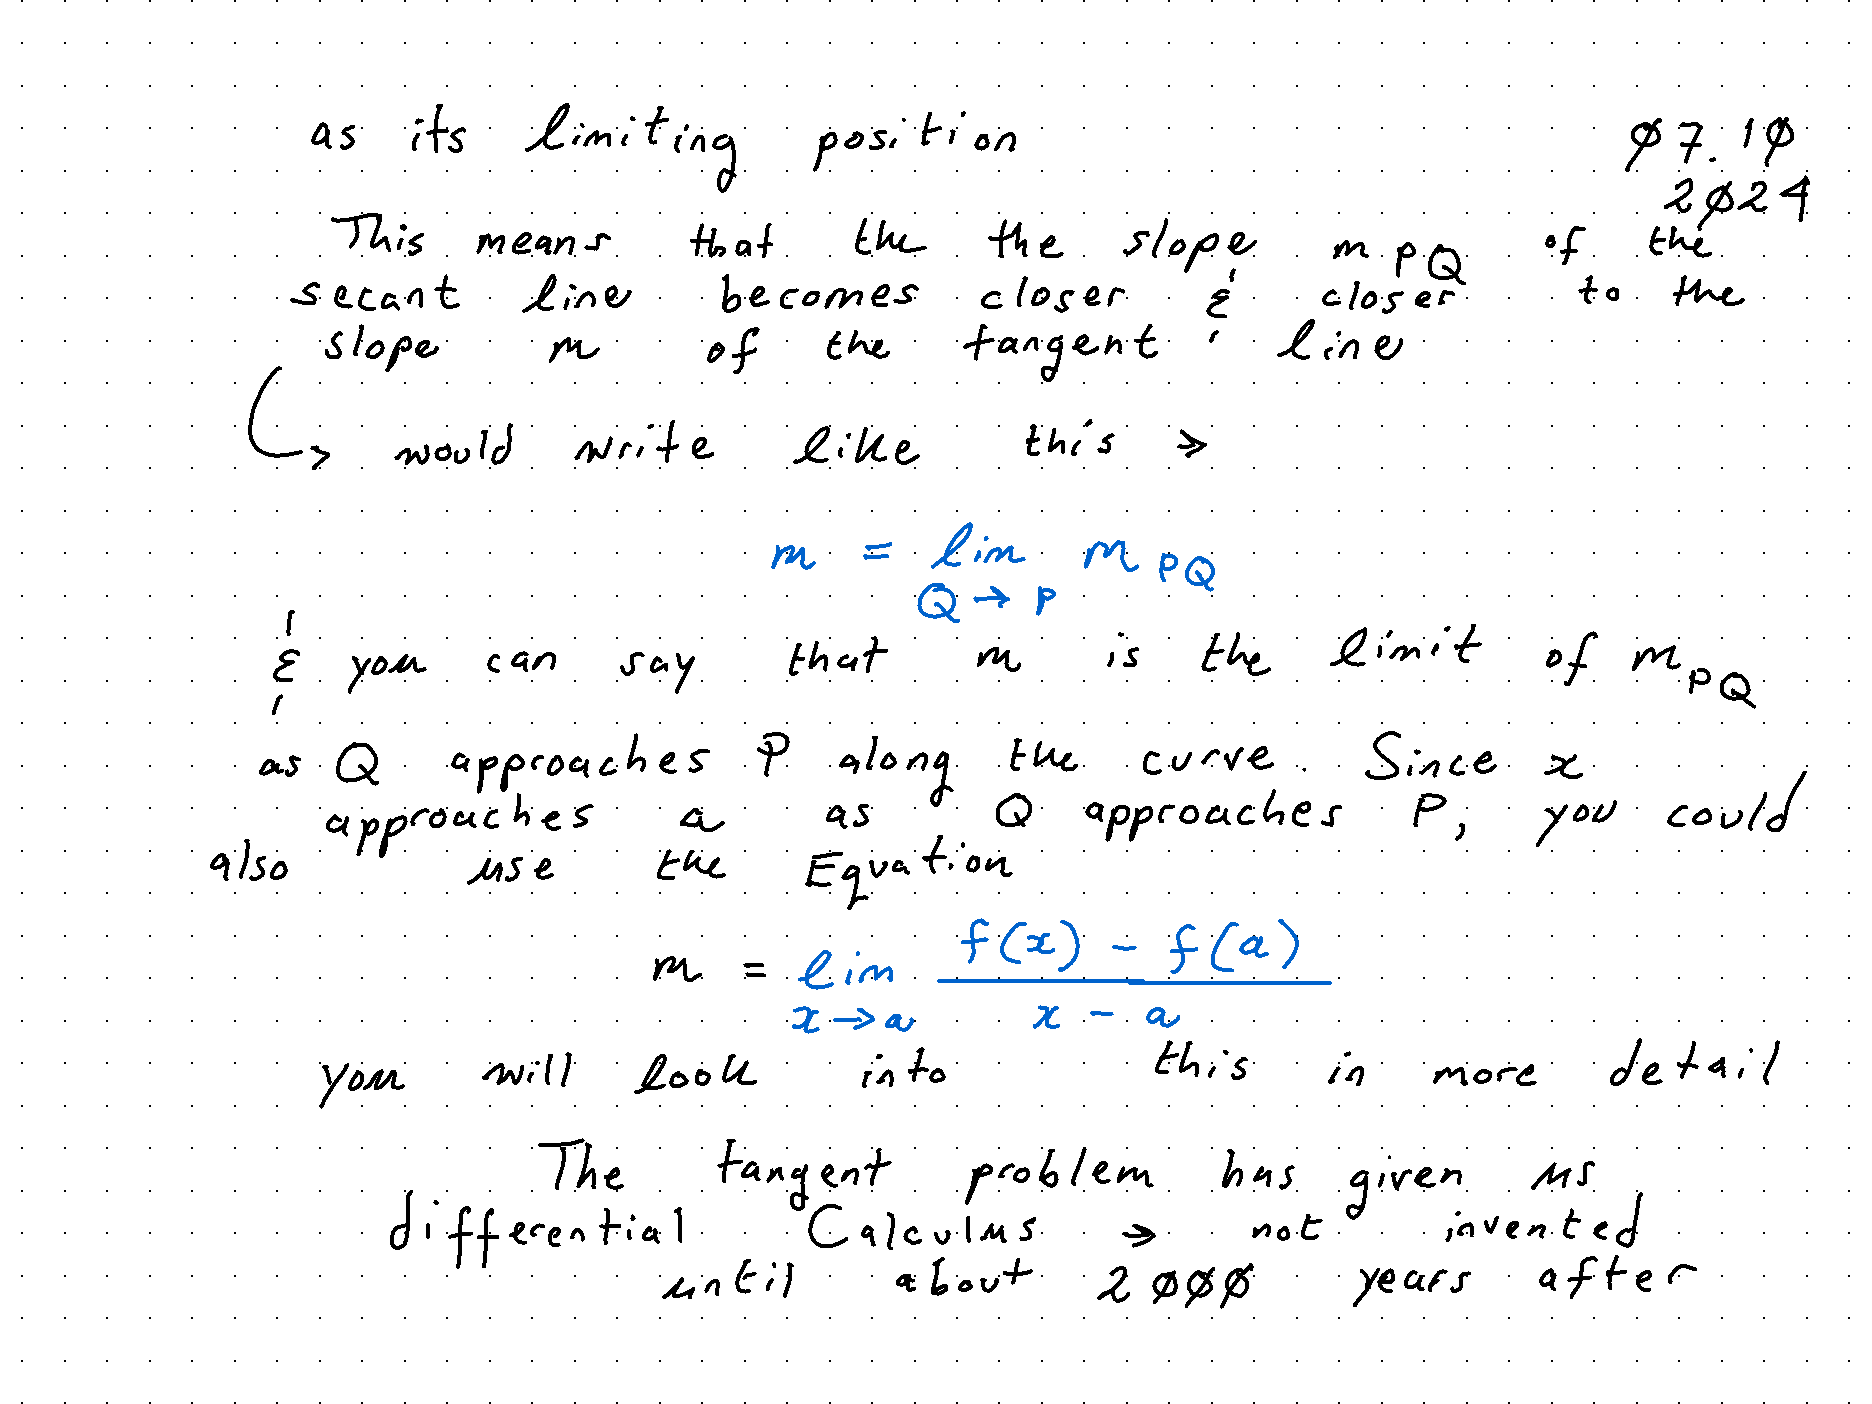 as its limiting position
07.10
2024
This means that the the slope m PQ of the
secant line becomes closer & closer to the
slope m of the tangent line
↳ would write like this →
m = lim m PQ
Q → P
& you can say that m is the limit of m PQ
as Q approaches P along the curve. Since x
approaches a as Q approaches P, you could
also use the Equation
m = lim f(x) - f(a)
x → a x - a
you will look into this in more detail
The tangent problem has given us
differential Calculus → not invented
until about 2000 years after